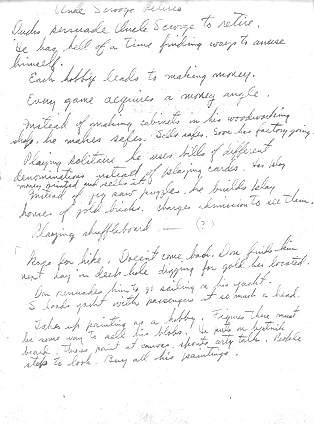 Uncle Scrooge Retires
Ducks persuade Uncle Scrooge to retire.
He has hell of a time finding ways to amuse
himself.
Each hobby leads to making money.
Every game acquires a money angle.
Instead of making cabinets in his woodworking
shop, he makes safes. Sells safes. Soon has factory going.
Playing solitaire he uses bills of different
denominations instead of playing cards. Has play
money printed and sells it.
Instead of jig saw puzzles, he builds play
houses of gold bricks. Charges admission to see them.
Playing shuffleboard — (?)
Goes for hike. Doesn't come back. Don finds him
next day in deep hole digging for gold he's located.
Don persuades him to go sailing in his yacht.
S. loads yacht with passengers at so much a head.
Takes up painting as a hobby. Figures there must
be some way to sell his blobs. He puts on
beard, paint at canvas, spouts arty talk. People
stop to look. Buy all his paintings.